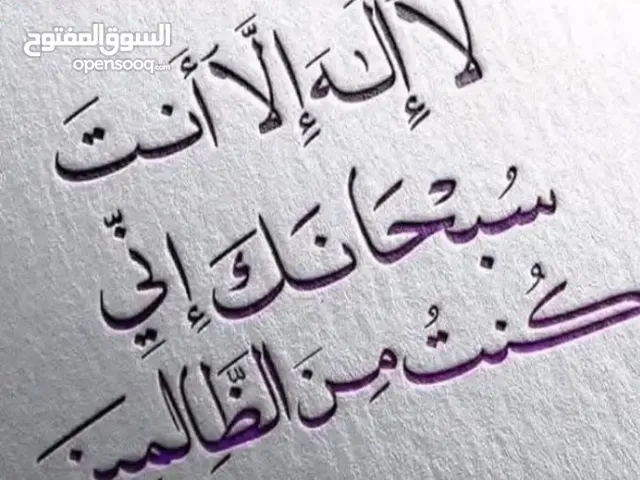 السوق المفتوح
opensooq.com
لَا إِلَٰهَ إِلَّا أَنتَ
سُبْحَانَكَ إِنِّي
كُنتُ مِنَ الظَّالِمِينَ